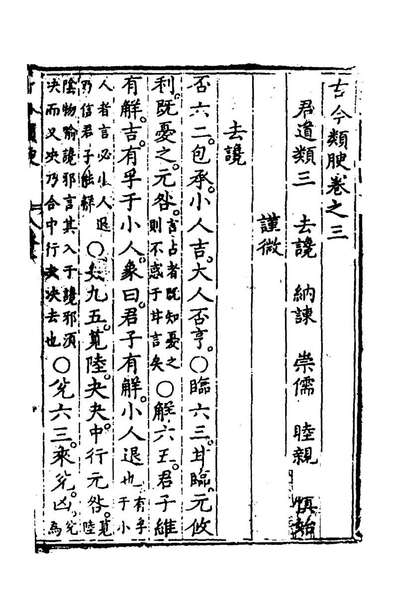 古今類腴卷之三
君道類三　去讒　納諫　崇儒　睦親　慎始
謹微
去讒
否六二。包承。小人吉。大人否亨。〇臨六三。甘臨。无攸
利。既憂之。无咎。言占者既知憂之則不惑于甘言矣〇解六五。君子維
有解。吉。有孚于小人。象曰。君子有解。小人退也。有孚于小
人者言必小人退乃信君子能解〇夬九五。莧陸夬夬。中行无咎。莧陸
陰物喻讒邪言其入于讒邪須決而又決乃合中行夬夬去也〇兌六三。來兌。凶。兌為